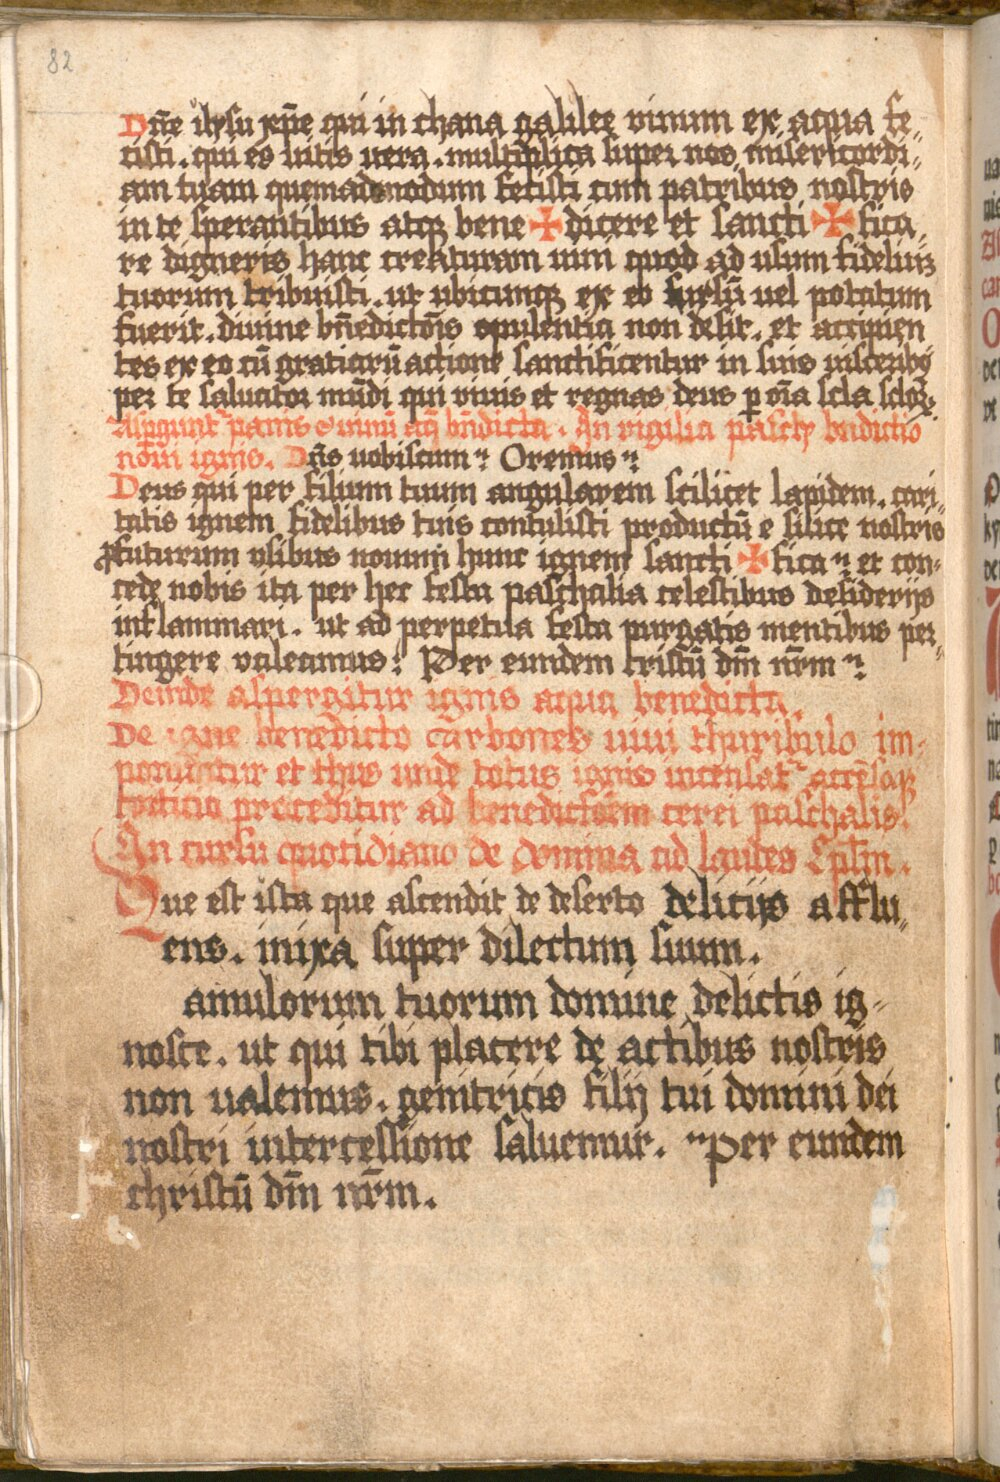 82
Dn̄e ihesu xp̄e qui in chana galilee vinum ex aqua fe„
cisti. qui es uitis uera. multiplica super nos misericordi„
am tuam quemadmodum fecisti cum patribus nostris
in te sperantibus atqꝫ bene ✠ dicere et sancti ✠ fica„
re digneris hanc creaturam uini quod ad usum fideliū
tuorum tribuisti. ut ubicunqꝫ ex eo fusū uel potatum
fuerit. diuine bn̄edictōis opulentia non desit. et accipien
tes ex eo cū gratiarū actione sanctificentur in suis uisceribꝰ
per te saluator mūdi qui viuis et regnas deus ꝑ oīa scla scloꝝ.
Aspigunt᷑ panis et uinū aq̄ bn̄dicta. In vigilia pasche bn̄dictio
noui ignis. Dn̄s uobiscum Oremus
Deus qui per filium tuum angularem scilicet lapidem. cari„
tatis ignem fidelibus tuis contulisti productū e silice nostris
ꝓfuturum vsibus nouum hunc ignem sancti ✠ fica et con„
cede nobis ita per hec festa paschalia celestibus desiderijs
inflammari. ut ad perpetua festa purgatis mentibus per„
tingere valeamus: Per eundem cristū dm̄ nr̄m
Deinde aspergitur ignis aqua benedicta.
De igne benedicto carbones uiui thuribulo im„
ponuntur et thus unde totus ignis incensat᷑ accēsaqꝫ
torticio proceditur ad benedictōem cerei paschalis.
In cursu quotidiano de domina ad laudes Cplm̄.
Que est ista que ascendit de deserto delicijs afflu„
ens. inixa super dilectum suum.
amulorum tuorum domine delictis ig„
nosce. ut qui tibi placere de actibus nostris
non ualemus. genitricis filij tui domini dei
nostri intercessione saluemur. Per eundem
christū dm̄ nr̄m.